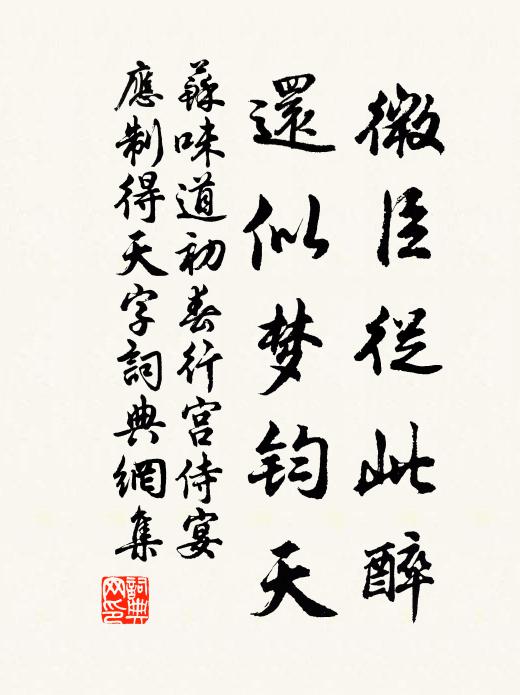 微臣從此醉
還似梦钧天
蘇味道初春行宫侍宴
應制得天字詞典網集
詞典
网印